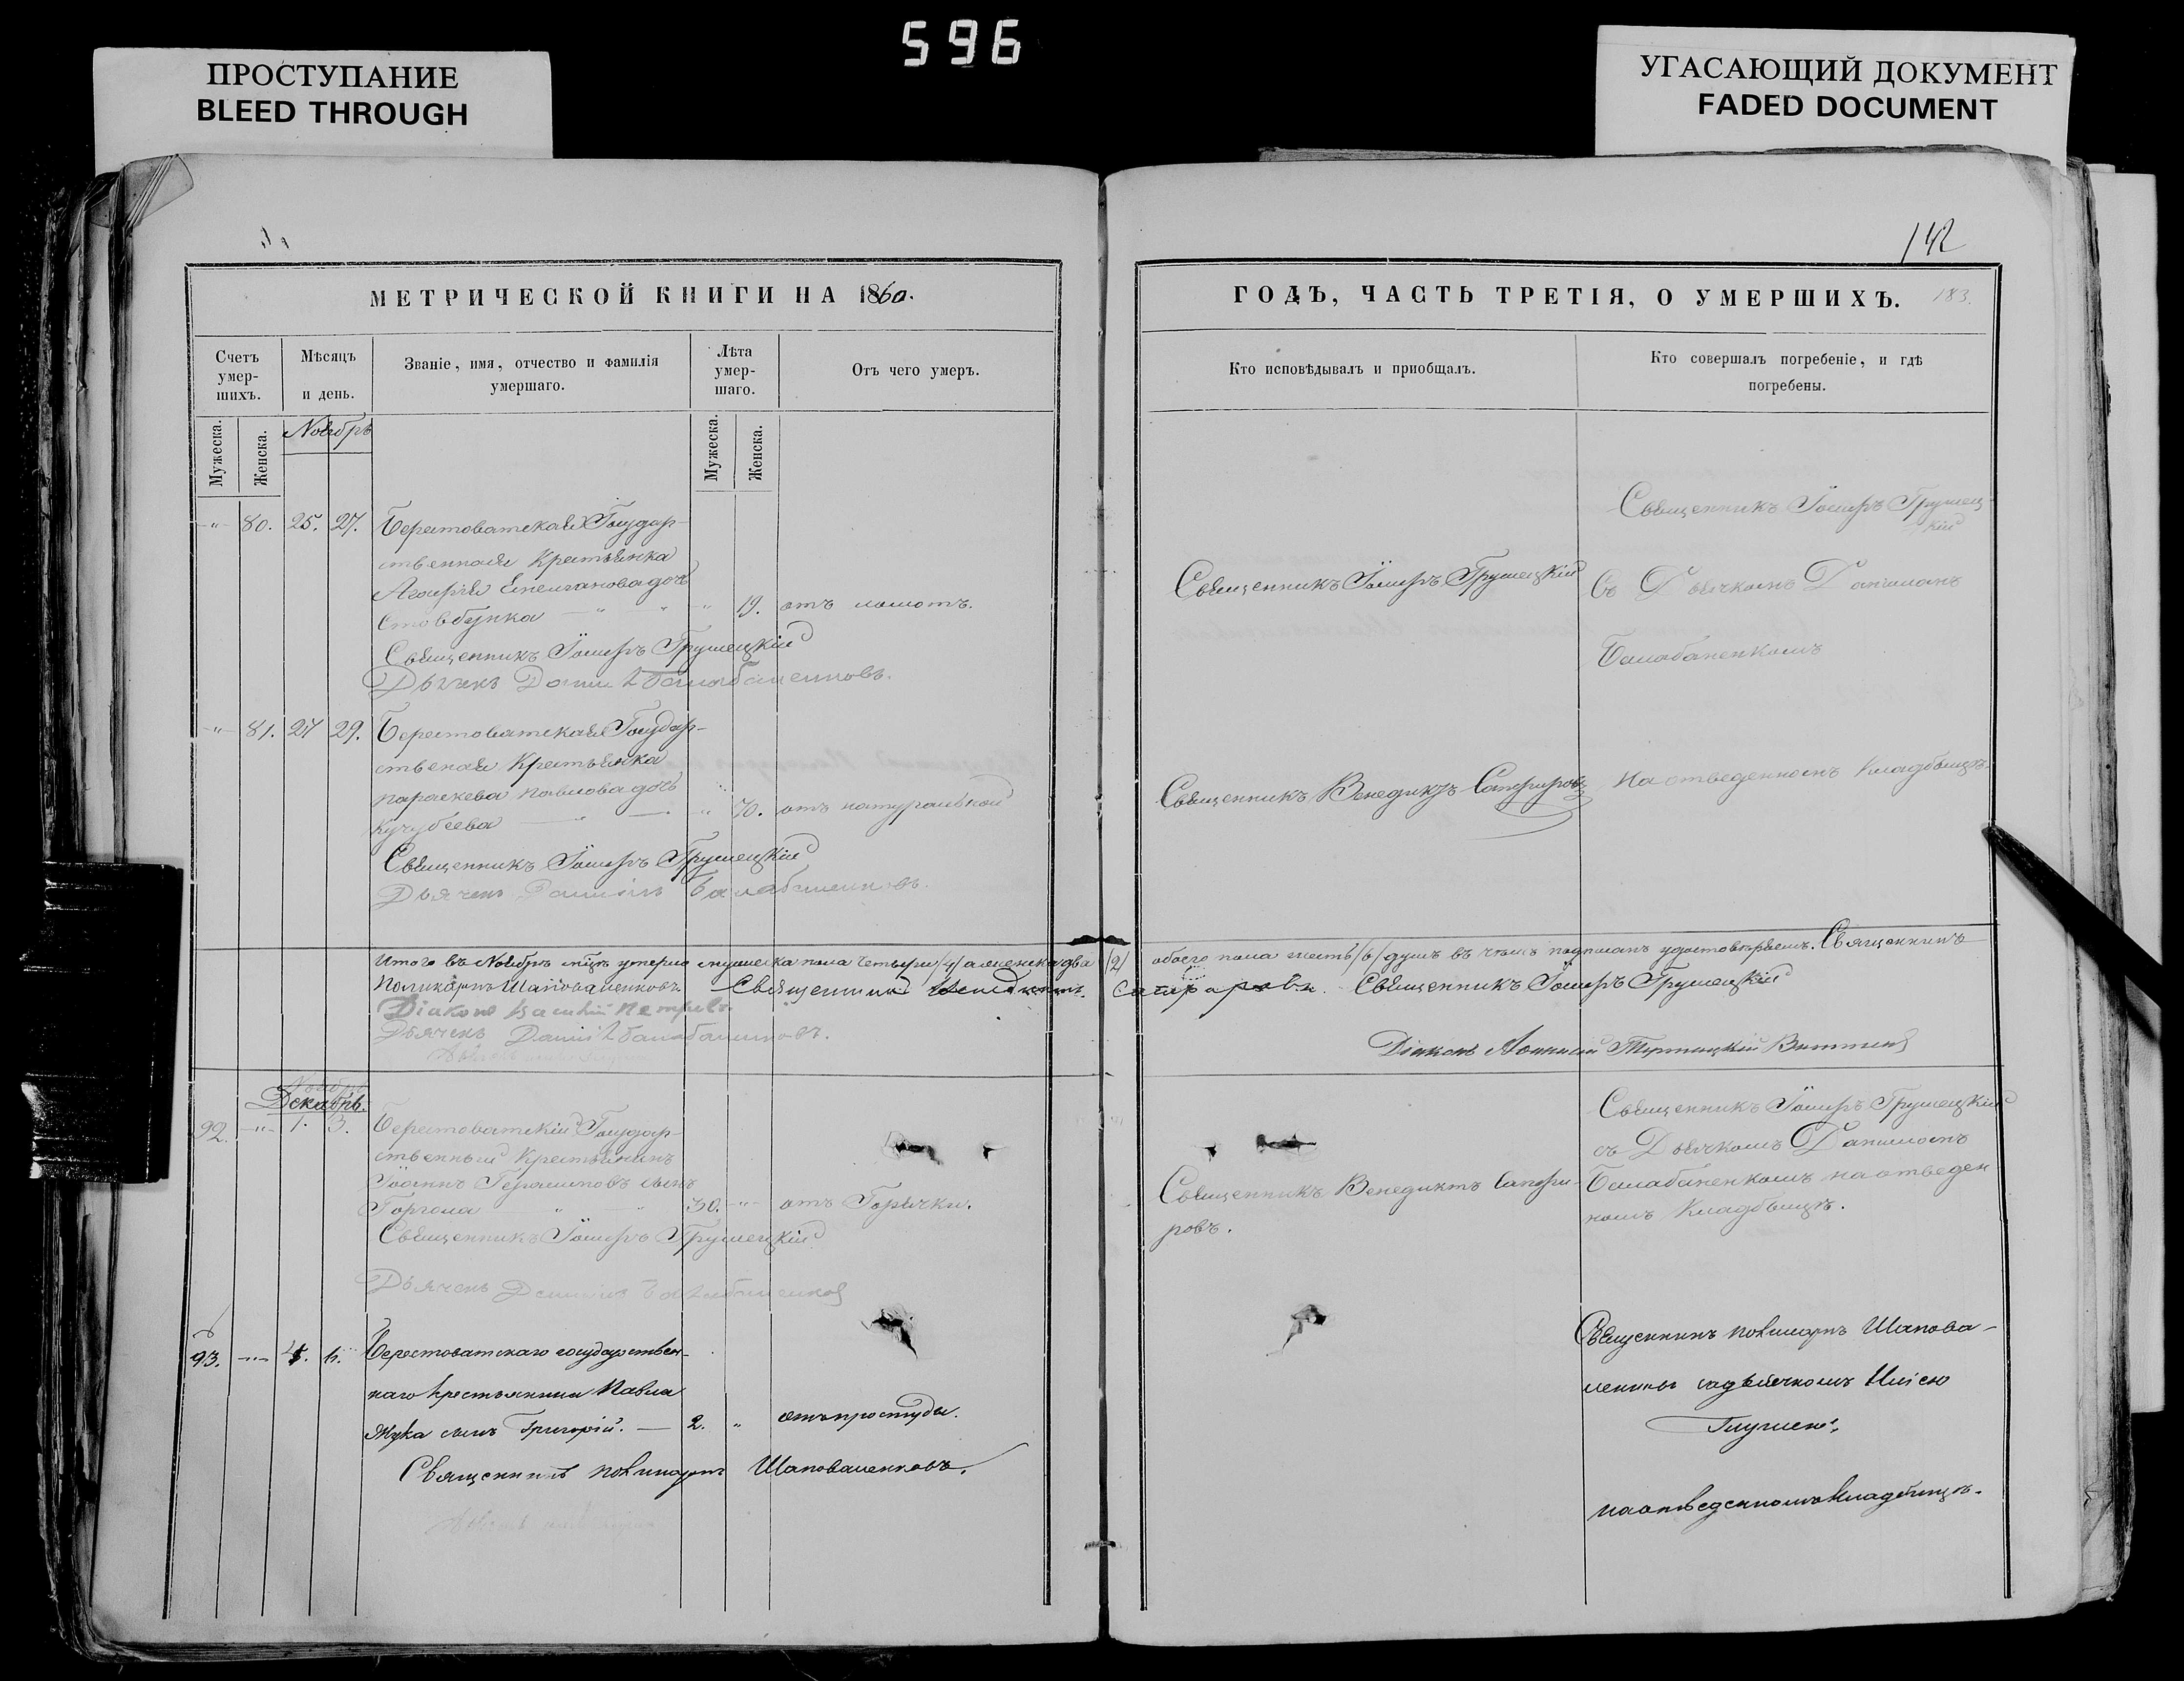 596
ПРОСТУПАНИЕ
BLEED THROUGH
УГАСАЮЩИЙ ДОКУМЕНТ
FADED DOCUMENT
142
МЕТРИЧЕСКОЙ КНИГИ НА 1860.
ГОДЪ, ЧАСТЬ ТРЕТІЯ, О УМЕРШИХЪ. 183.
Счетъ умер-шихъ.
Мѣсяцъ и день.
Званіе, имя, отчество и фамилія
умершаго.
Лѣта умер-шаго.
Отъ чего умеръ.
Кто исповѣдывалъ и приобщалъ.
Кто совершалъ погребеніе, и гдѣ
погребены.
Мужеска.
Женска.
Ноябрь
Мужеска.
Женска.
" 80. 25. 27. Берестоватская Государ-
ственная Крестьянка
дочь
Стовбунка " 19. отъ ломотъ.
Священникъ Іосифъ Грушецкій
Дьячекъ Даніил Балабаненковъ.
Священникъ Іосифъ Грушецкій
Священникъ Іосифъ Грушец-
кій
съ Дьячкомъ Даніиломъ
Балабаненкомъ
" 81. 27 29. Берестоватская Государ-
ственая Крестьянка
Параскева Павлова дочь
Кучубеева " 70. отъ натуральной
Священникъ Іосифъ Грушецкій
Дьячекъ Даніилъ Балабаненковъ.
Священникъ Венедиктъ Сапфировъ
на отведенномъ кладбищѣ.
Итого въ Ноябрѣ мцѣ умерло мужеска пола четыри /4/ а женска два /2/ обоего пола шесть /6/ душъ въ чѣмъ подписомъ удостовѣряемъ. Священникъ
Поликарпъ Шаповаленковъ Священникъ Венедиктъ Сапфировъ. Священникъ Іосифъ Грушецкій
Діаконъ
Дьячекъ Даніил Балабаненковъ.
Діаконъ
Декабрь.
92. " 1. 3. Берестоватскій Государ-
ственный Крестьянинъ
Іоаннъ Герасимовъ сынъ
Горгола 30. " отъ Горячки.
Священникъ Іосифъ Грушецкій
Дьячекъ Даніилъ Балабаненков
Священникъ Венедиктъ Сапфи-
ровъ.
Священникъ Іосифъ Грушецкій
съ Дьячкомъ Даніиломъ
Балабаненкомъ на отведен
номъ Кладбищѣ.
93. " 4. 6. Берестоватскаго государствен-
наго крестьянина Павла
Жука сынъ Григорій. — 2. " отъ простуды.
Священникъ Поликарпъ Шаповаленковъ.
Священникъ Поликарпъ Шапова-
ленковъ
на отведенномъ кладбищѣ.